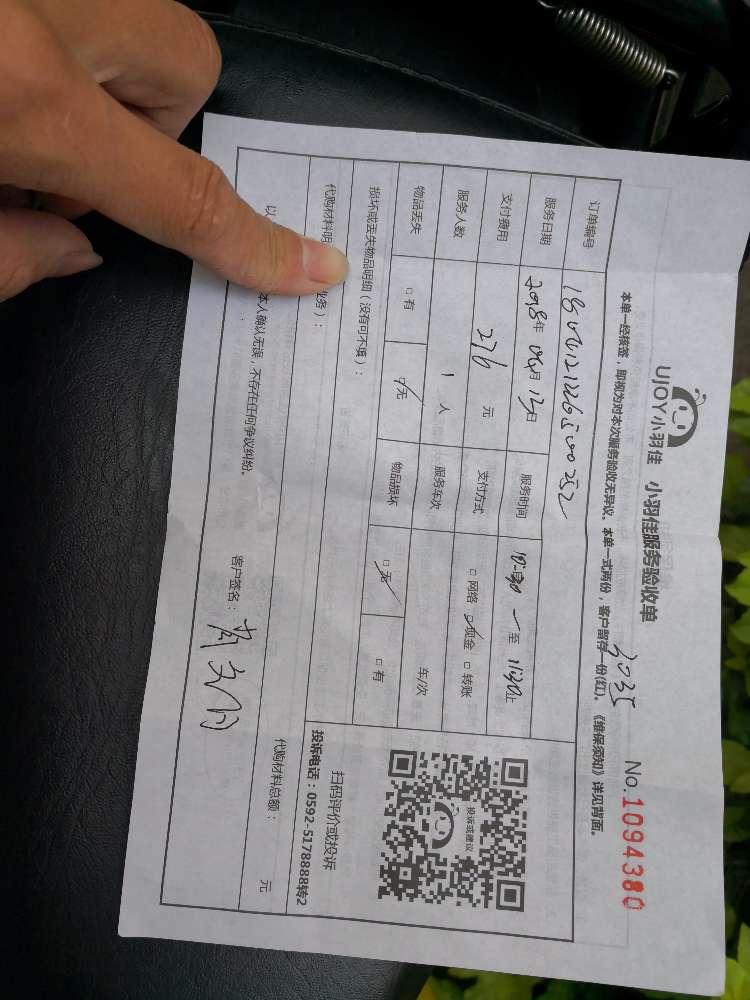 UJOY小羽佳 小羽佳服务验收单
3035
No.1094380
本单一经核签，即视为对本次服务验收无异议。本单一式两份，客户留存一份(红)。《维保须知》详见背面。
订单编号
服务日期 2018年 04月 13日 服务时间 至 11:30止
支付费用 276 元 支付方式 □网络 ☑现金 □转账
服务人数 1 人 服务车次 车/次
物品丢失 □有 ☑无 物品损坏 ☑无 □有
损坏或丢失物品明细（没有可不填）：
代购材料明 业务）：
代购材料总额： 元
以 本人确认无误，不存在任何争议纠纷。
客户签名：
投诉或建议
扫码评价或投诉
投诉电话：0592-5178888转2